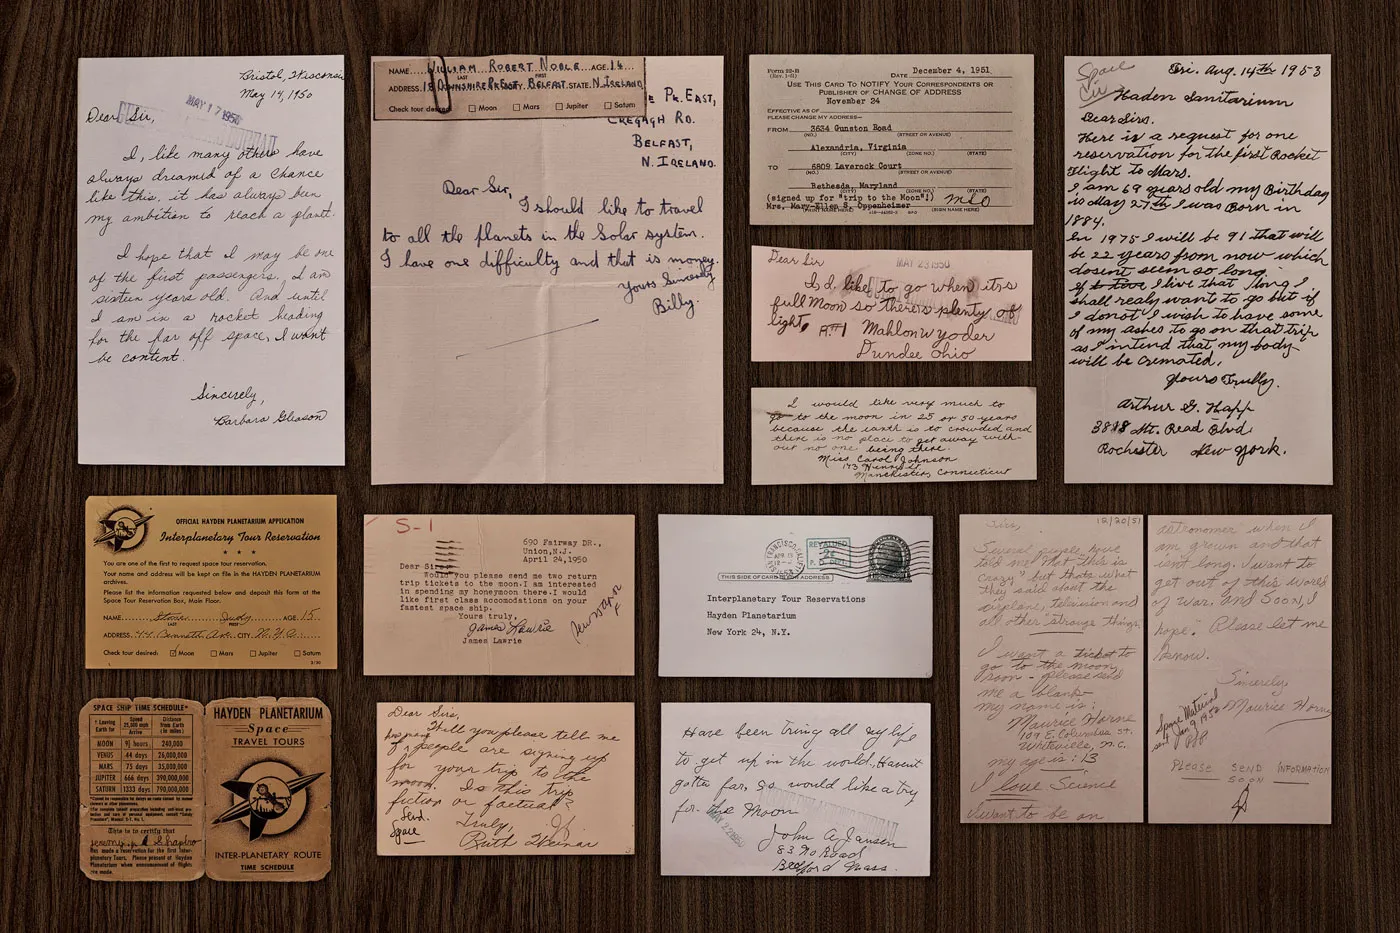 Bristol, Wisconsin
May 14, 1950
MAY 17 1950
Dear Sir,
I, like many others have
always dreamid of a chance
like this, it has always been
my ambition to reach a planet.
I hope that I may be one
of the first passengers. I am
sixteen years old. And until
I am in a rocket heading
for the far off space, I wont
be content.
Sincerely,
Barbara Gleason
NAME WILLIAM ROBERT NOBLE AGE 14
LAST FIRST
ADDRESS 18 DOWNSHIRE PK EAST, BELFAST STATE N. IRELAND
Check tour desired Moon Mars Jupiter Saturn
PK. EAST,
CREGAGH RD.
BELFAST,
N. IRELAND.
Dear Sir,
I should like to travel
to all the planets in the Solar system.
I have one difficulty and that is money.
Yours Sincerely
Billy.
Form 22-R
(Rev. 1-51)
DATE December 4, 1951
USE THIS CARD TO NOTIFY YOUR CORRESPONDENTS OR
PUBLISHER OF CHANGE OF ADDRESS
November 24
EFFECTIVE AS OF
PLEASE CHANGE MY ADDRESS—
FROM 3634 Gunston Road
(NO.) (STREET OR AVENUE)
Alexandria, Virginia
(CITY) (ZONE NO.) (STATE)
TO 6809 Laverock Court
(NO.) (STREET OR AVENUE)
Bethesda, Maryland
(CITY) (ZONE NO.) (STATE)
(signed up for "trip to the Moon"!)
Mrs. Mary-Ellen S. Oppenheimer MEO
(PRINT NAME HERE) (SIGN NAME HERE)
Dear Sir
MAY 23 1950
I d. like to go when its
full Moon so theres plenty of
light. R#1 Mahlon W Yoder
Dundee Ohio
I would like very much to
go to the moon in 25 or 50 years
because the earth is to crowded and
there is no place to get away with-
out no one being there.
Miss Carol Johnson
143 Henry St
Manchester, Connecticut
Space
Cir
Fri. Aug. 14th 1953
Haden Sanitarium
Dear Sirs.
Here is a request for one
reservation for the first Rocket
Flight to Mars.
I am 69 years old my Birthday
is May 27th I was Born in
1884.
In 1975 I will be 91 that will
be 22 years from now which
dosent seem so long.
if I live that long I
shall realy want to go but if
I do not I wish to have some
of my ashes to go on that trip
as I intend that my body
will be cremated.
Yours Trully.
Arthur G. Happ
3888 Mt. Read Blvd.
Rochester New York.
OFFICIAL HAYDEN PLANETARIUM APPLICATION
Interplanetary Tour Reservation
★ ★ ★
You are one of the first to request space tour reservation.
Your name and address will be kept on file in the HAYDEN PLANETARIUM
archives.
Please list the information requested below and deposit this form at the
Space Tour Reservation Box, Main Floor.
NAME Stone Judy AGE 15
LAST FIRST
ADDRESS 44 Bennett Ave. CITY N.Y.C.
Check tour desired: Moon Mars Jupiter Saturn
S-1
690 Fairway DR.,
Union,N.J.
April 24,1950
Dear Sir:
Would you please send me two return
trip tickets to the moon.I am interested
in spending my honeymoon there.I would
like first class accomodations on your
fastest space ship.
Yours truly,
James Lawrie
James Lawrie
SAN FRANCISCO, CALIF.
APR 13
REVALUED
2¢
P. O. DEPT.
THIS SIDE OF CARD IS FOR ADDRESS
Interplanetary Tour Reservations
Hayden Planetarium
New York 24, N.Y.
12/20/51
Sirs,
Several people have
told me that this is
crazy" but thats what
they said about the
airplane, television and
all other "strange things.
I want a ticket to
go to the moon,
soon - please send
me a blank
my name is:
Maurice Horne
109 E. Columbus St.
Whiteville, N.C.
my age is : 13
I love Science
I want to be an
astronomer when I
am grown and that
isnt long. I want to
get out of this world
of war. and Soon, I
hope". Please let me
know.
Sincerely,
Maurice Horne
Space Material
sent Jan 9, 1952
PLEASE SEND INFORMATION
SOON
SPACE SHIP TIME SCHEDULE*
† Leaving Earth for
Speed 25,000 mph Arrive
Distance from Earth (in miles)
MOON 9½ hours 240,000
VENUS 44 days 26,000,000
MARS 75 days 35,000,000
JUPITER 666 days 390,000,000
SATURN 1333 days 790,000,000
This is to certify that
Jeremy Shapiro
has made a reservation for the first Inter-
planetary Tours. Please present at Hayden
Planetarium when announcement of flights
are made.
HAYDEN PLANETARIUM
Space
TRAVEL TOURS
INTER-PLANETARY ROUTE
TIME SCHEDULE
Dear Sirs,
Will you please tell me
how many people are signing up
for your trip to the
moon. Is this trip
fiction or factual?
Truly,
Ruth Weinar
Send.
Space
Have been trieng all my life
to get up in the world. Havent
gotten far, so would like a try
for the Moon
MAY 22 1950
John A. Jansen
83 No Road
Bedford Mass.